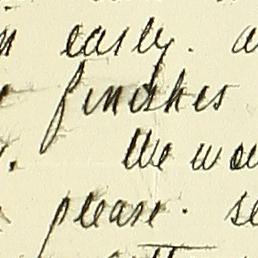 early.
finishes
We wou
please. se